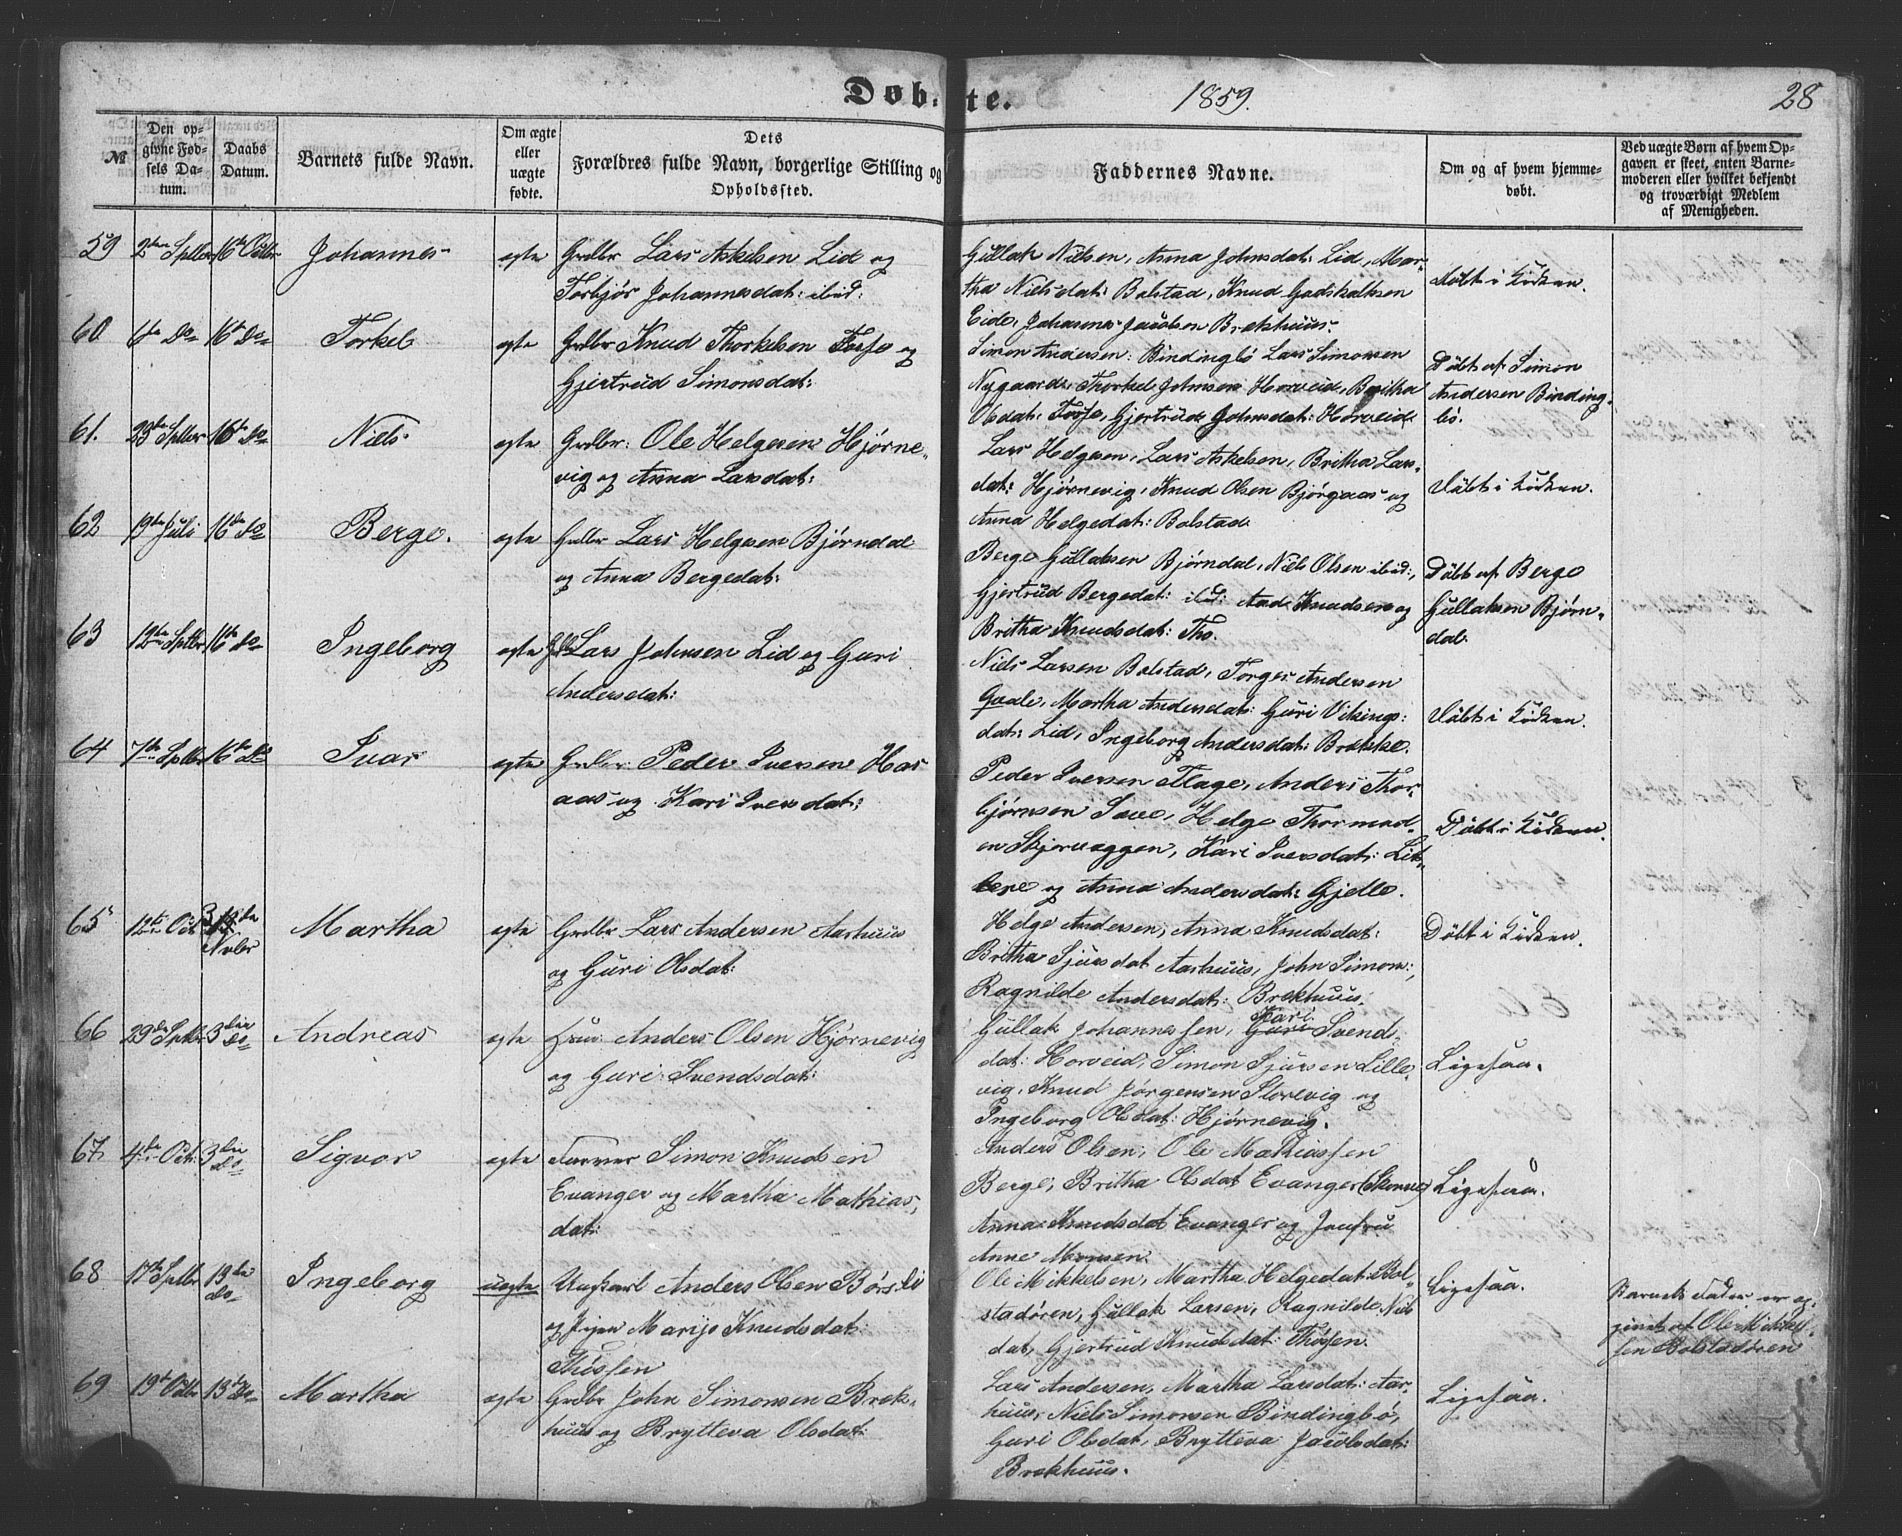 Døbte. 1859. 28
№ Den opgivne Fødsels Datum. Daabs Datum. Barnets fulde Navn. Om ægte eller uægte fødte. Dets Forældres fulde Navn, borgerlige Stilling og Opholdssted. Faddernes Navne. Om og af hvem hjemmedøbt. Ved uægte Børn af hvem Opgaven er skeet, enten Barnemoderen eller hvilket bekjendt og troværdigt Medlem af Menigheden.
59 2den Sptbr 16de Octbr Johannes egte Grdbr Lars Askelsen Lid og
Torbjør Johannesdat: ibid:
Gullak Nielsen, Anna Johnsdat: Lid, Mar-
tha Nielsdat: Bolstad, Knud Godskalksen
Eide, Johannes Jacobsen Brekhuus.
Døbt i Kirken.
60 6te Do 16de Do Torkel egte Grdbr Knud Thorkelsen Fosse og
Gjertrud Simonsdat:
Simon Andersen: Bindingbø Lars Simonsen
Nygaard, Thorkel Johnsen Horveid, Britha
Olsdat: Fosse, Gjertrud Johnsdat: Horveid
Døbt af Simon
Andersen Binding-
bø.
61. 23de Sptbr 16de Do Niels egte Grdbr: Ole Helgesen Hjørne-
vig og Anna Larsdat:
Lars Helgesen, Lars Askelsen, Britha Lars-
dat: Hjørnevig, Knud Olsen Bjørgaas og
Anna Helgedat: Bolstad
Døbt i Kirken.
62 19de Juli 16de Do Berge. egte Grdbr Lars Helgesen Bjørndal
og Anna Bergedat:
Berge Gullaksen Bjørndal, Niels Olsen ibid:,
Gjertrud Bergedat: ibid: Aad Knudsen og
Britha Knudsdat: Tho.
Døbt af Berge
Gullaksen Bjørn-
dal
63 12te Sptbr 16de Do Ingeborg egte Grdbr Lars Johnsen Lid og Guri
Andersdat:
Niels Larsen Bolstad, Torger Andersen
Qvale, Martha Andersdat: Guri Vikings:
dat: Lid, Ingeborg Andersdat: Brekke.
Døbt i Kirken.
64 7de Sptbr 16de Do Ivar egte Grdbr Peder Iversen Hor
aas og Kari Iversdat:
Peder Iversen Flage, Anders Thor-
bjørnsen Saue, Helge Thormod-
en Skjervaggen, Kari Iversdat: Lit-
lere og Anna Andersdat: Gjelle.
Døbt i Kirken.
65 12te Oct 3die Novbr Martha egte Grdbr Lars Andersen Aarhuus
og Guri Olsdat:
Helge Andersen, Anna Knudsdat:
Britha Sjursdat Aarhuus, John Simons:,
Ragnilde Andersdat: Brekhuus.
Døbt i Kirken.
66 29de Sptbr 3die Do Andreas egte Huus: Anders Olsen Hjørnevig
og Guri Svendsdat:
Gullak Johannessen, Kari Svend-
dat: Horveid, Simon Sjursen Lille-
vig, Knud Jørgensen Storevig og
Ingeborg Olsdat: Hjørnevig.
Ligesaa.
67 4de Oct: 3die Do Sigvor egte Farver Simon Knudsen
Evanger og Martha Mathias,
dat:
Anders Olsen, Ole Mathiassen
Berge, Britha Olsdat Evanger (Skorve)
Anna Knudsdat Evanger og Jomfru
Anne Monsen.
Ligesaa.
68 17de Sptbr 13de do Ingeborg uegte Ungkarl Anders Olsen Børsli
og Pigen Marije Knudsdat:
Thøssen
Ole Mikkelsen, Martha Helgedat: Bol-
stadøren, Gullak Larsen, Ragnilde Niels
dat, Gjertrud Knudsdat: Thøssen.
Ligesaa.
Barnets Fader er op-
givet af Ole Mikkel-
sen Bolstadøren
69 19de Octbr 13de Do Martha egte Grdbr John Simonsen Brek-
huus og Brytteva Olsdat:
Lars Andersen, Martha Larsdat: Aar-
huus, Niels Simonsen Bindingbø,
Guri Olsdat, Brytteva Jacobsdat:
Brekhuus.
Ligesaa.